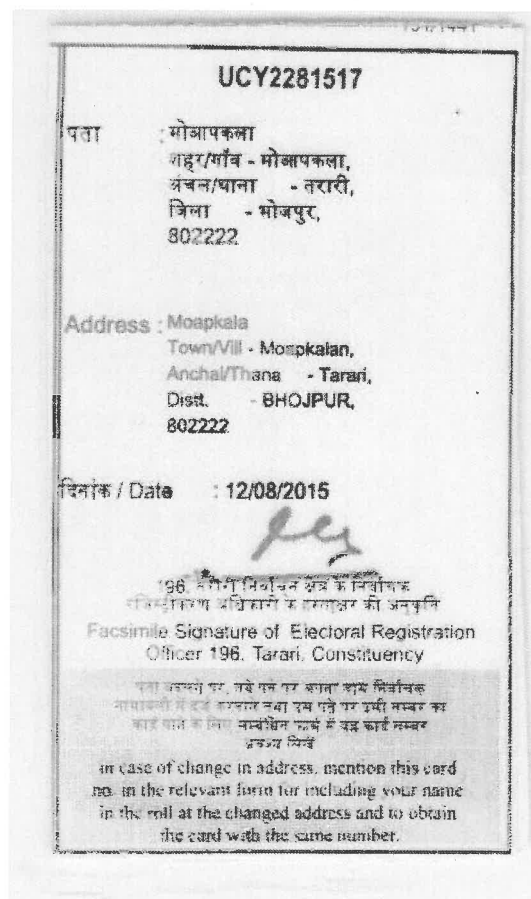 UCY2281517
पता : मोआपकला
शहर/गाँव - मोआपकला,
अंचल/थाना - तरारी,
जिला - भोजपुर,
802222
Address : Moapkala
Town/Vill - Moapkalan,
Anchal/Thana - Tarari,
Distt. - BHOJPUR,
802222
दिनांक / Date : 12/08/2015
196, तरारी निर्वाचन क्षेत्र के निर्वाचक
रजिस्ट्रीकरण अधिकारी के हस्ताक्षर की अनुकृति
Facsimile Signature of Electoral Registration
Officer 196, Tarari, Constituency
पता बदलने पर, नये पते पर अपना नाम निर्वाचक
नामावली में दर्ज करवाने तथा उस पते पर इसी नम्बर का
कार्ड पाने के लिए सम्बंधित फार्म में यह कार्ड नम्बर
अवश्य लिखें
in case of change in address, mention this card
no. in the relevant form for including your name
in the roll at the changed address and to obtain
the card with the same number.